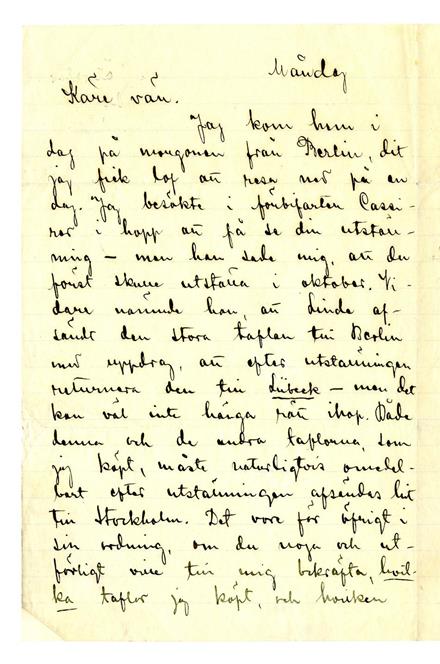 Måndag
Käre vän.
Jag kom hem i
dag på morgonen från Berlin, dit
jag fick lof att resa ned på en
dag. Jag besökte i förbifarten Cassi-
rer i hopp att få se din utställ-
ning – men han sade mig, att du
först skulle utställa i oktober. Vi-
dare nämnde han, att Linde af-
sändt den stora taflan till Berlin
med uppdrag, att efter utställningen
returnera den till Lübeck – men det
kan väl inte hänga rätt ihop. Både
denna och de andra taflorna, som
jag köpt, måste naturligtvis omedel-
bart efter utställningen afsändas hit
till Stockholm. Det vore för öfrigt i
sin ordning, om du noga och ut-
förligt ville till mig bekräfta, hvil-
ka taflor jag köpt, och hvilken